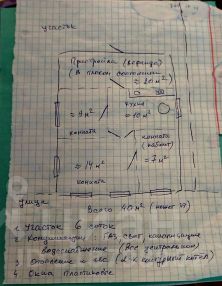 участок
Пристройка (веранда)
(в плохом состоянии)
≈ 20 м²
кухня
≈ 9 м²
≈ 10 м²
комната
комната
(кабинет)
≈ 14 м²
≈ 7 м²
комната
Улица
Всего 40 м²
1 Участок 6 соток
2 Коммуникации: газ свет канализация
водоснабжение (все центральное)
3 Отопление и гвс (2-х контурный котел)
4 Окна пластиковые